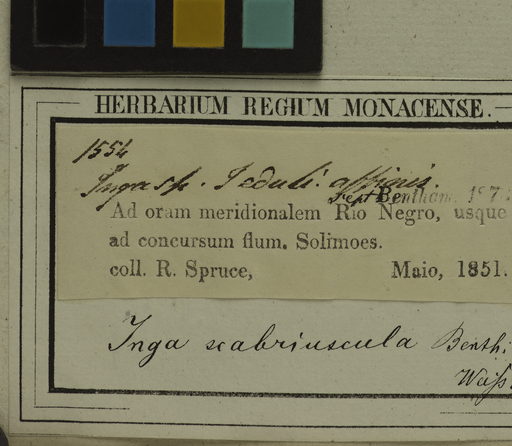 HERBARIUM REGIUM MONACENSE.
1554
Inga sp. I. eduli. affinis.
Sept Bentham. 187
Ad oram meridionalem Rio Negro, usque
ad concursum flum. Solimoes.
coll. R. Spruce, Maio, 1851.
Inga scabriuscula Benth.